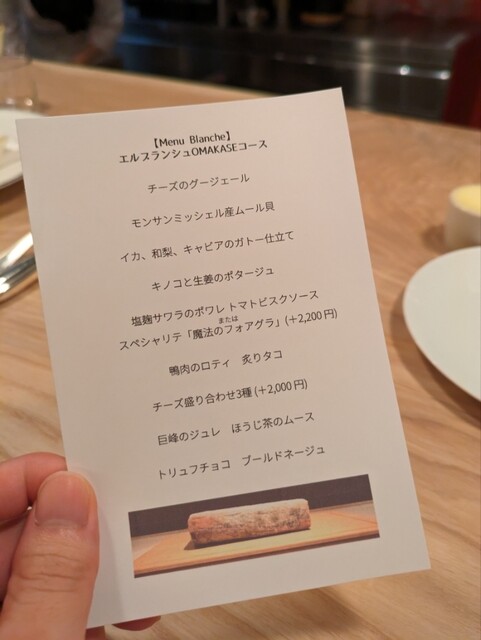 【Menu Blanche】
エルブランシュOMAKASEコース
チーズのグージェール
モンサンミッシェル産ムール貝
イカ、和梨、キャビアのガトー仕立て
キノコと生姜のポタージュ
塩麹サワラのポワレ トマトビスクソース
または
スペシャリテ「魔法のフォアグラ」(+2,200円)
鴨肉のロティ 炙りタコ
チーズ盛り合わせ3種 (+2,000円)
巨峰のジュレ ほうじ茶のムース
トリュフチョコ ブールドネージュ